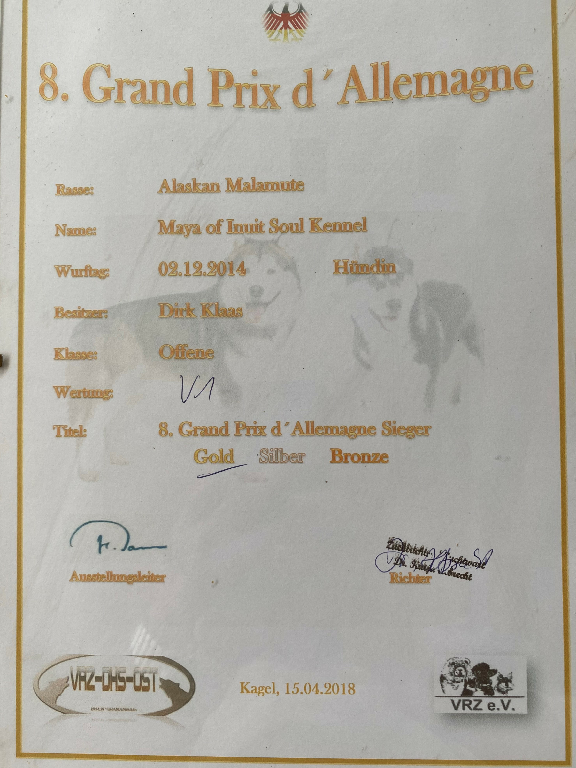 8. Grand Prix d´Allemagne
Rasse: Alaskan Malamute
Name: Maya of Inuit Soul Kennel
Wurftag: 02.12.2014 Hündin
Besitzer: Dirk Klaas
Klasse: Offene
Wertung: V1
Titel: 8. Grand Prix d´Allemagne Sieger
Gold Silber Bronze
Ausstellungsleiter
Richter
VRZ-DHS-OST
Kagel, 15.04.2018
VRZ e.V.